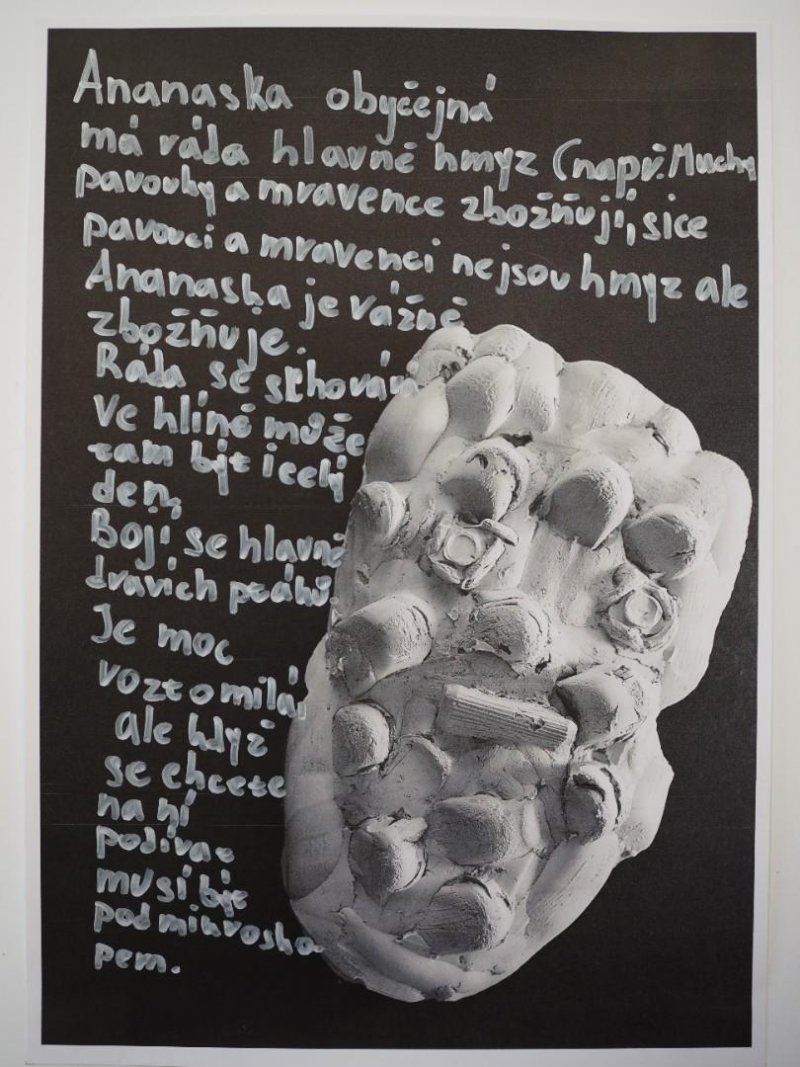 Ananaska obyčejná
má ráda hlavně hmyz (např. Muchy
pavouky a mravence zbožňují, sice
pavouci a mravenci nejsou hmyz ale
Ananaska je vážně
zbožňuje.
Ráda se schovává
ve hlíně může
tam být i celý
den,
Bojí se hlavně
dravích ptáků
Je moc
roztomilá,
ale když
se chcete
na ní
podívat
musí být
pod mikrosko
pem.